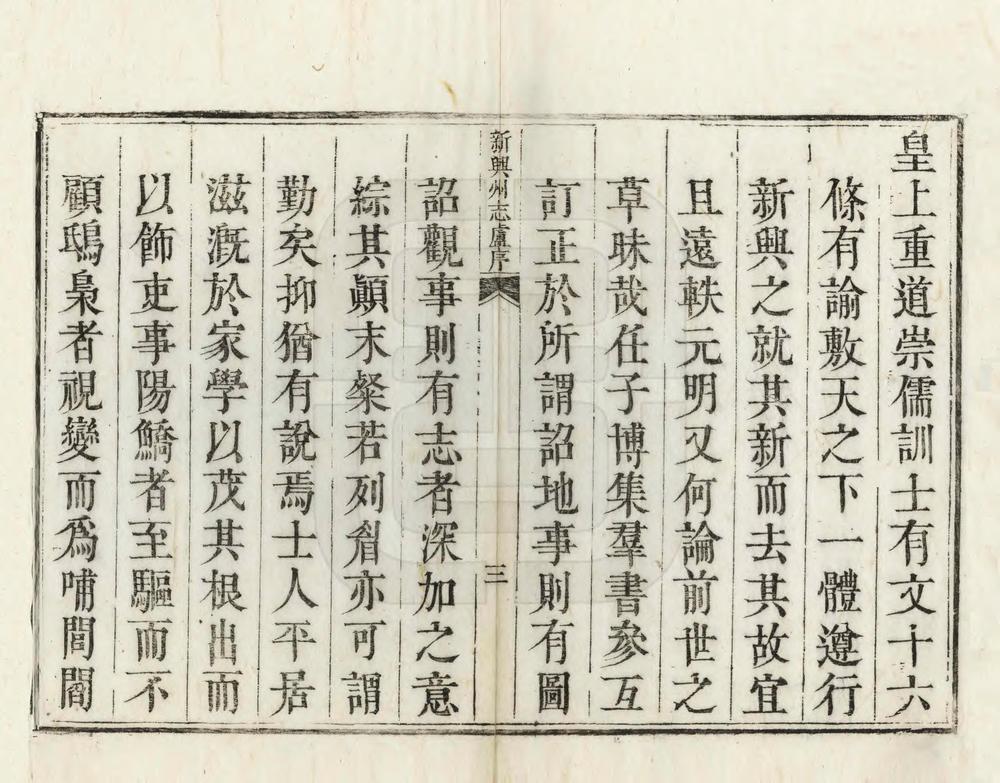 皇上重道崇儒訓士有文十六
條有諭敷天之下一體遵行
新興之就其新而去其故宜
且遠軼元明又何論前世之
草昧哉任子博集羣書參互
訂正於所謂詔地事則有圖
新興州志盧序
三
詔觀事則有志者深加之意
綜其顚末粲若列眉亦可謂
勤矣抑猶有說焉士人平居
滋漑於家學以茂其根出而
以飾吏事陽鱎者至驅而不
顧鴟梟者視變而爲哺閭閻